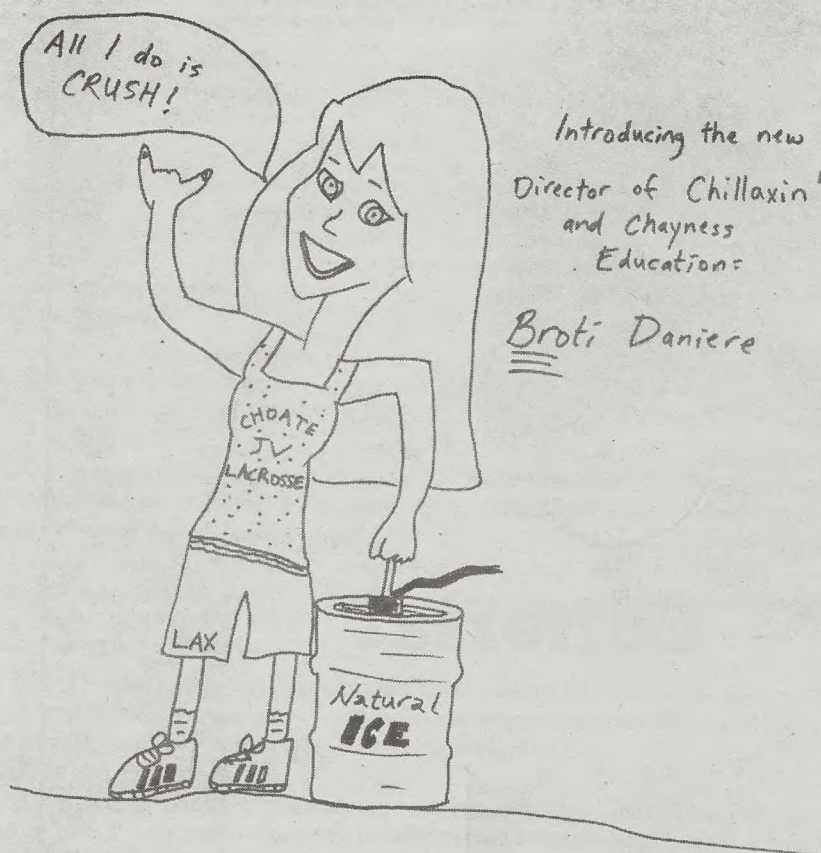 All I do is
CRUSH!
Introducing the new
Director of Chillaxin'
and Chayness
Education:
Broti Daniere
CHOATE
JV
LACROSSE
LAX
Natural
ICE